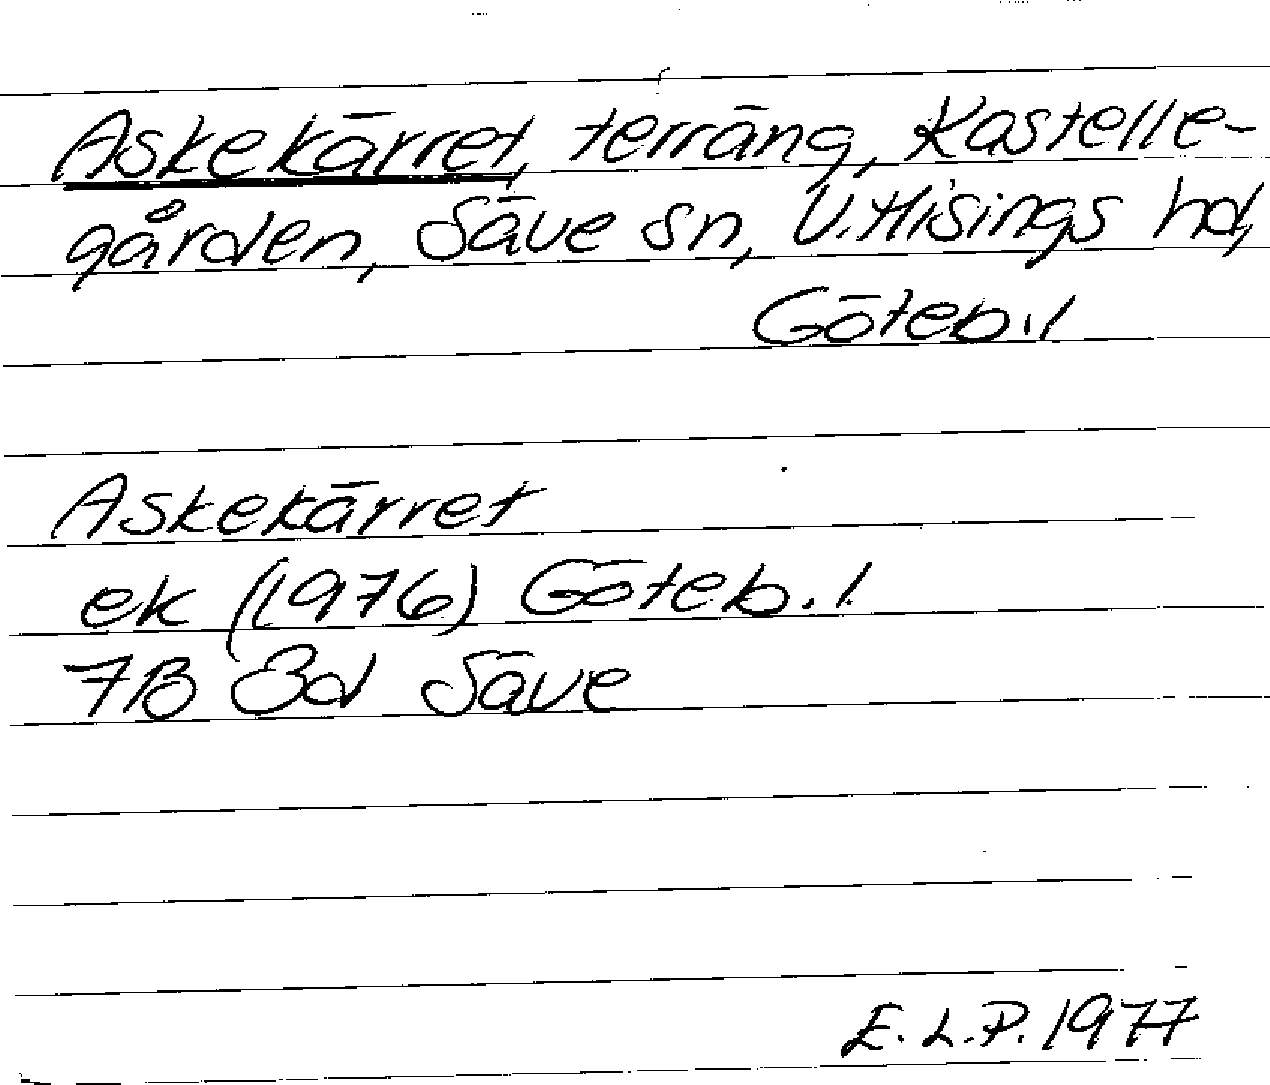 Askekärret, terräng, Kastelle-
gården, Säve sn, V. Hisings hd,
Göteb. l
Askekärret
ek (1976) Göteb. l.
7B 3d Säve
E. L. P. 1977